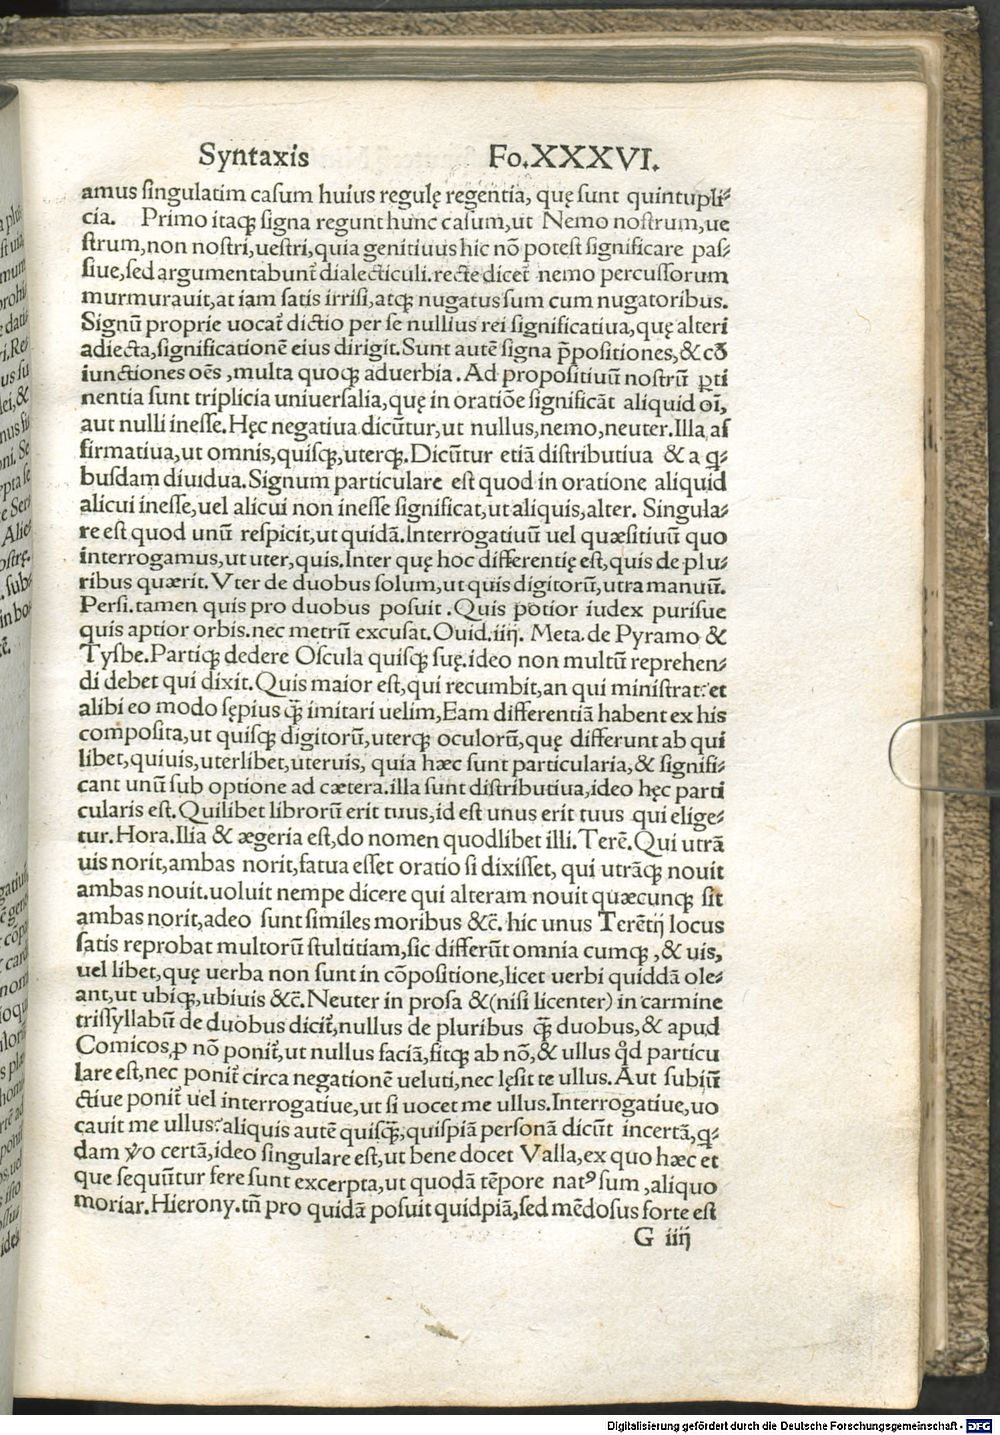 Syntaxis Fo.XXXVI.
amus singulatim casum huius regulę regentia, quę sunt quintupli⸗
cia. Primo itaqꝫ signa regunt hunc casum,ut Nemo nostrum,ue
strum,non nostri,uestri,quia genitiuus hic nō potest significare pas⸗
siue,sed argumentabunt᷑ dialecticuli.recte dicet᷑ nemo percussorum
murmurauit,at iam satis irrisi,atqꝫ nugatus sum cum nugatoribus.
Signū proprie uocat᷑ dictio per se nullius rei significatiua,quę alteri
adiecta,significationē eius dirigit.Sunt autē signa p̄positiones,& cō
iunctiones oēs ,multa quoqꝫ aduerbia.Ad propositiuū nostrū ꝑti
nentia sunt triplicia uniuersalia,quę in oratiōe significāt aliquid oī,
aut nulli inesse.Hęc negatiua dicūtur,ut nullus,nemo,neuter.Illa af
firmatiua,ut omnis,quisqꝫ,uterqꝫ.Dicūtur etiā distributiua & a q⸗
busdam diuidua.Signum particulare est quod in oratione aliquid
alicui inesse,uel alicui non inesse significat,ut aliquis,alter. Singula⸗
re est quod unū respicit,ut quidā.Interrogatiuū uel quæsitiuū quo
interrogamus,ut uter,quis.Inter quę hoc differentię est,quis de plu⸗
ribus quærit.Vter de duobus solum,ut quis digitorū,utra manuū.
Persi.tamen quis pro duobus posuit .Quis potior iudex purisue
quis aptior orbis.nec metrū excusat.Ouid.iiij. Meta.de Pyramo &
Tysbe.Partiqꝫ dedere Oscula quisqꝫ suę.ideo non multū reprehen⸗
di debet qui dixit.Quis maior est,qui recumbit,an qui ministrat:et
alibi eo modo sępius q̄ꝫ imitari uelim,Eam differentiā habent ex his
composita,ut quisqꝫ digitorū,uterqꝫ oculorū,quę differunt ab qui
libet,quiuis,uterlibet,uteruis, quia hæc sunt particularia,& signifi⸗
cant unū sub optione ad cætera.illa sunt distributiua,ideo hęc parti
cularis est.Quilibet librorū erit tuus,id est unus erit tuus qui elige⸗
tur.Hora.Ilia & ægeria est,do nomen quodlibet illi.Terē.Qui utrā
uis norit,ambas norit,fatua esset oratio si dixisset, qui utrāqꝫ nouit
ambas nouit.uoluit nempe dicere qui alteram nouit quæcunqꝫ sit
ambas norit,adeo sunt similes moribus &c̄. hic unus Terētij locus
satis reprobat multorū stultitiam,sic differūt omnia cumqꝫ ,& uis,
uel libet,quę uerba non sunt in cōpositione,licet uerbi quiddā ole⸗
ant,ut ubiqꝫ,ubiuis &c̄.Neuter in prosa &(nisi licenter) in carmine
trissyllabū de duobus dicit᷑,nullus de pluribus q̄ꝫ duobus,& apud
Comicos,ꝓ nō ponit᷑,ut nullus faciā,fitqꝫ ab nō,& ullus qd̓ particu
lare est,nec ponit᷑ circa negationē ueluti,nec lęsit te ullus.Aut subiū
ctiue ponit᷑ uel interrogatiue,ut si uocet me ullus.Interrogatiue,uo
cauit me ullus?aliquis autē quisq̄ꝫ,quispiā personā dicūt incertā,q⸗
dam v̓o certā,ideo singulare est,ut bene docet Valla,ex quo hæc et
que sequūtur fere sunt excerpta,ut quodā tēpore natꝰ sum ,aliquo
moriar.Hierony.tn̄ pro quidā posuit quidpiā,sed mēdosus forte est
G iiij
Digitalisierung gefördert durch die Deutsche Forschungsgemeinschaft - DFG